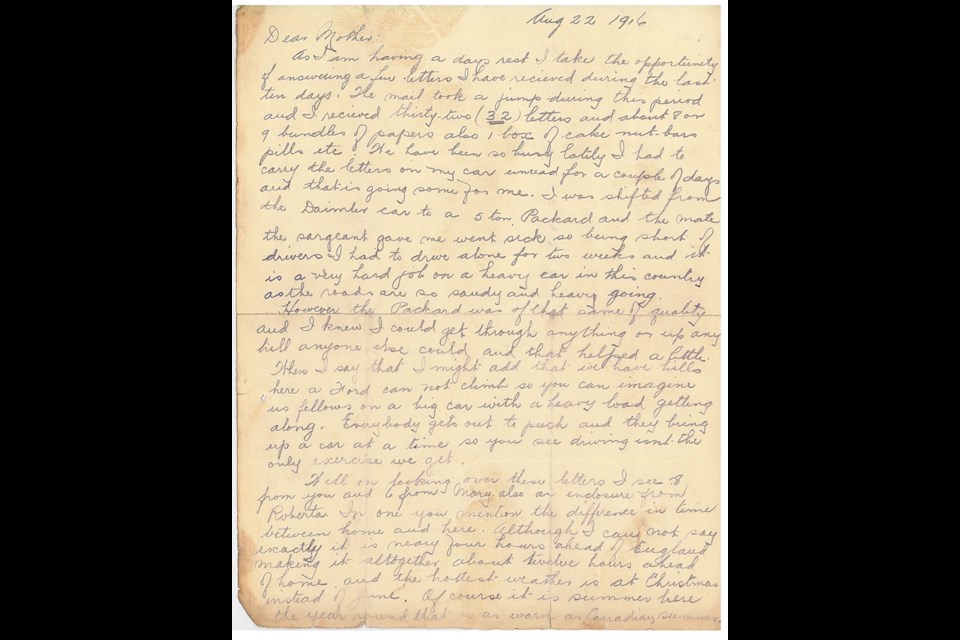 Aug 22 1916
Dear Mother.
As I am having a days rest I take the opportunity
of answering a few letters I have recieved during the last
ten days. The mail took a jump during this period
and I recieved thirty-two (32) letters and about 8 or
9 bundles of papers also 1 box of cake nut-bars
pills etc. We have been so busy lately I had to
carry the letters on my car unread for a couple of days
and that is going some for me. I was shifted from
the Daimler car to a 5 ton Packard and the mate
the sargeant gave me went sick so being short of
drivers I had to drive alone for two weeks and it
is a very hard job on a heavy car in this country
as the roads are so sandy and heavy going.
However the Packard was of that same of quality
and I knew I could get through anything or up any
hill anyone else could and that helped a little.
When I say that I might add that we have hills
here a Ford can not climb so you can imagine
us fellows on a big car with a heavy load getting
along. Everybody gets out to push and they bring
up a car at a time so you see driving isnt the
only exercise we get.
Well on looking over these letters I see 8
from you and 6 from Mary also an enclosure from
Roberta. In one you mention the difference in time
between home and here. Although I can not say
exactly it is neary four hours ahead of England
making it altogether about twelve hours ahead
of home and the hottest weather is at Christmas
instead of June. Of course it is summer here
the year round that is as warm as Canadian summer.